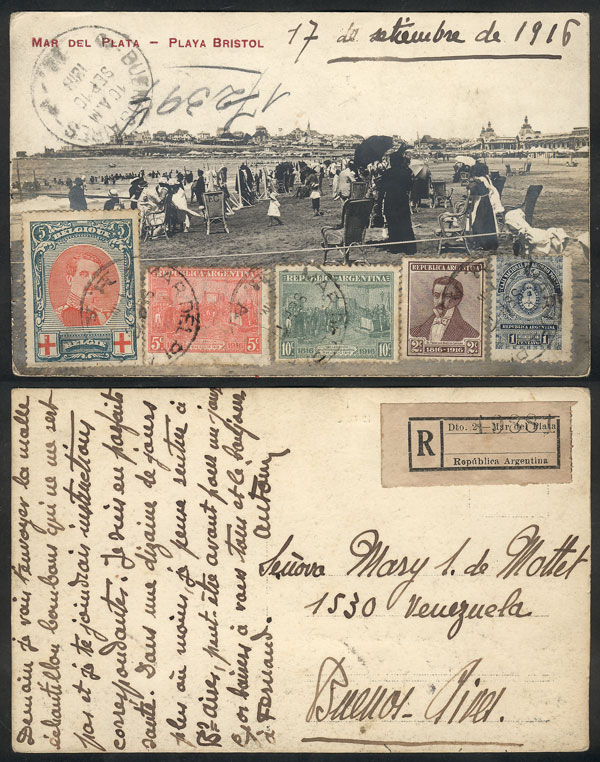 MAR DEL PLATA – PLAYA BRISTOL
17 de setiembre de 1916
17239
BUENOS AIRES
SEP 16
10 AM
BELGIQUE
5 5
BELGIË
REPUBLICA ARGENTINA
5c 1916 5c
REPUBLICA ARGENTINA
10c 1916 10c
REPUBLICA ARGENTINA
2c 1816-1916 2c
REPUBLICA ARGENTINA
1 CENTAVO 1
R
Dto. 2º—Mar del Plata
República Argentina
Demain je vais t'envoyer la malle
échantillon bonbons qui ne me sert
pas et je te joindrai instructions
correspondantes; je suis en parfaite
santé. Dans une dizaine de jours
plus ou moins, je pense rentrer à
Bs Aires, peut-être avant pour un jour
Gros baisers à vous tous et le bonjour
à Fernand.
Antony
Señora Mary S. de Mottet
1530 Venezuela
Buenos-Aires.